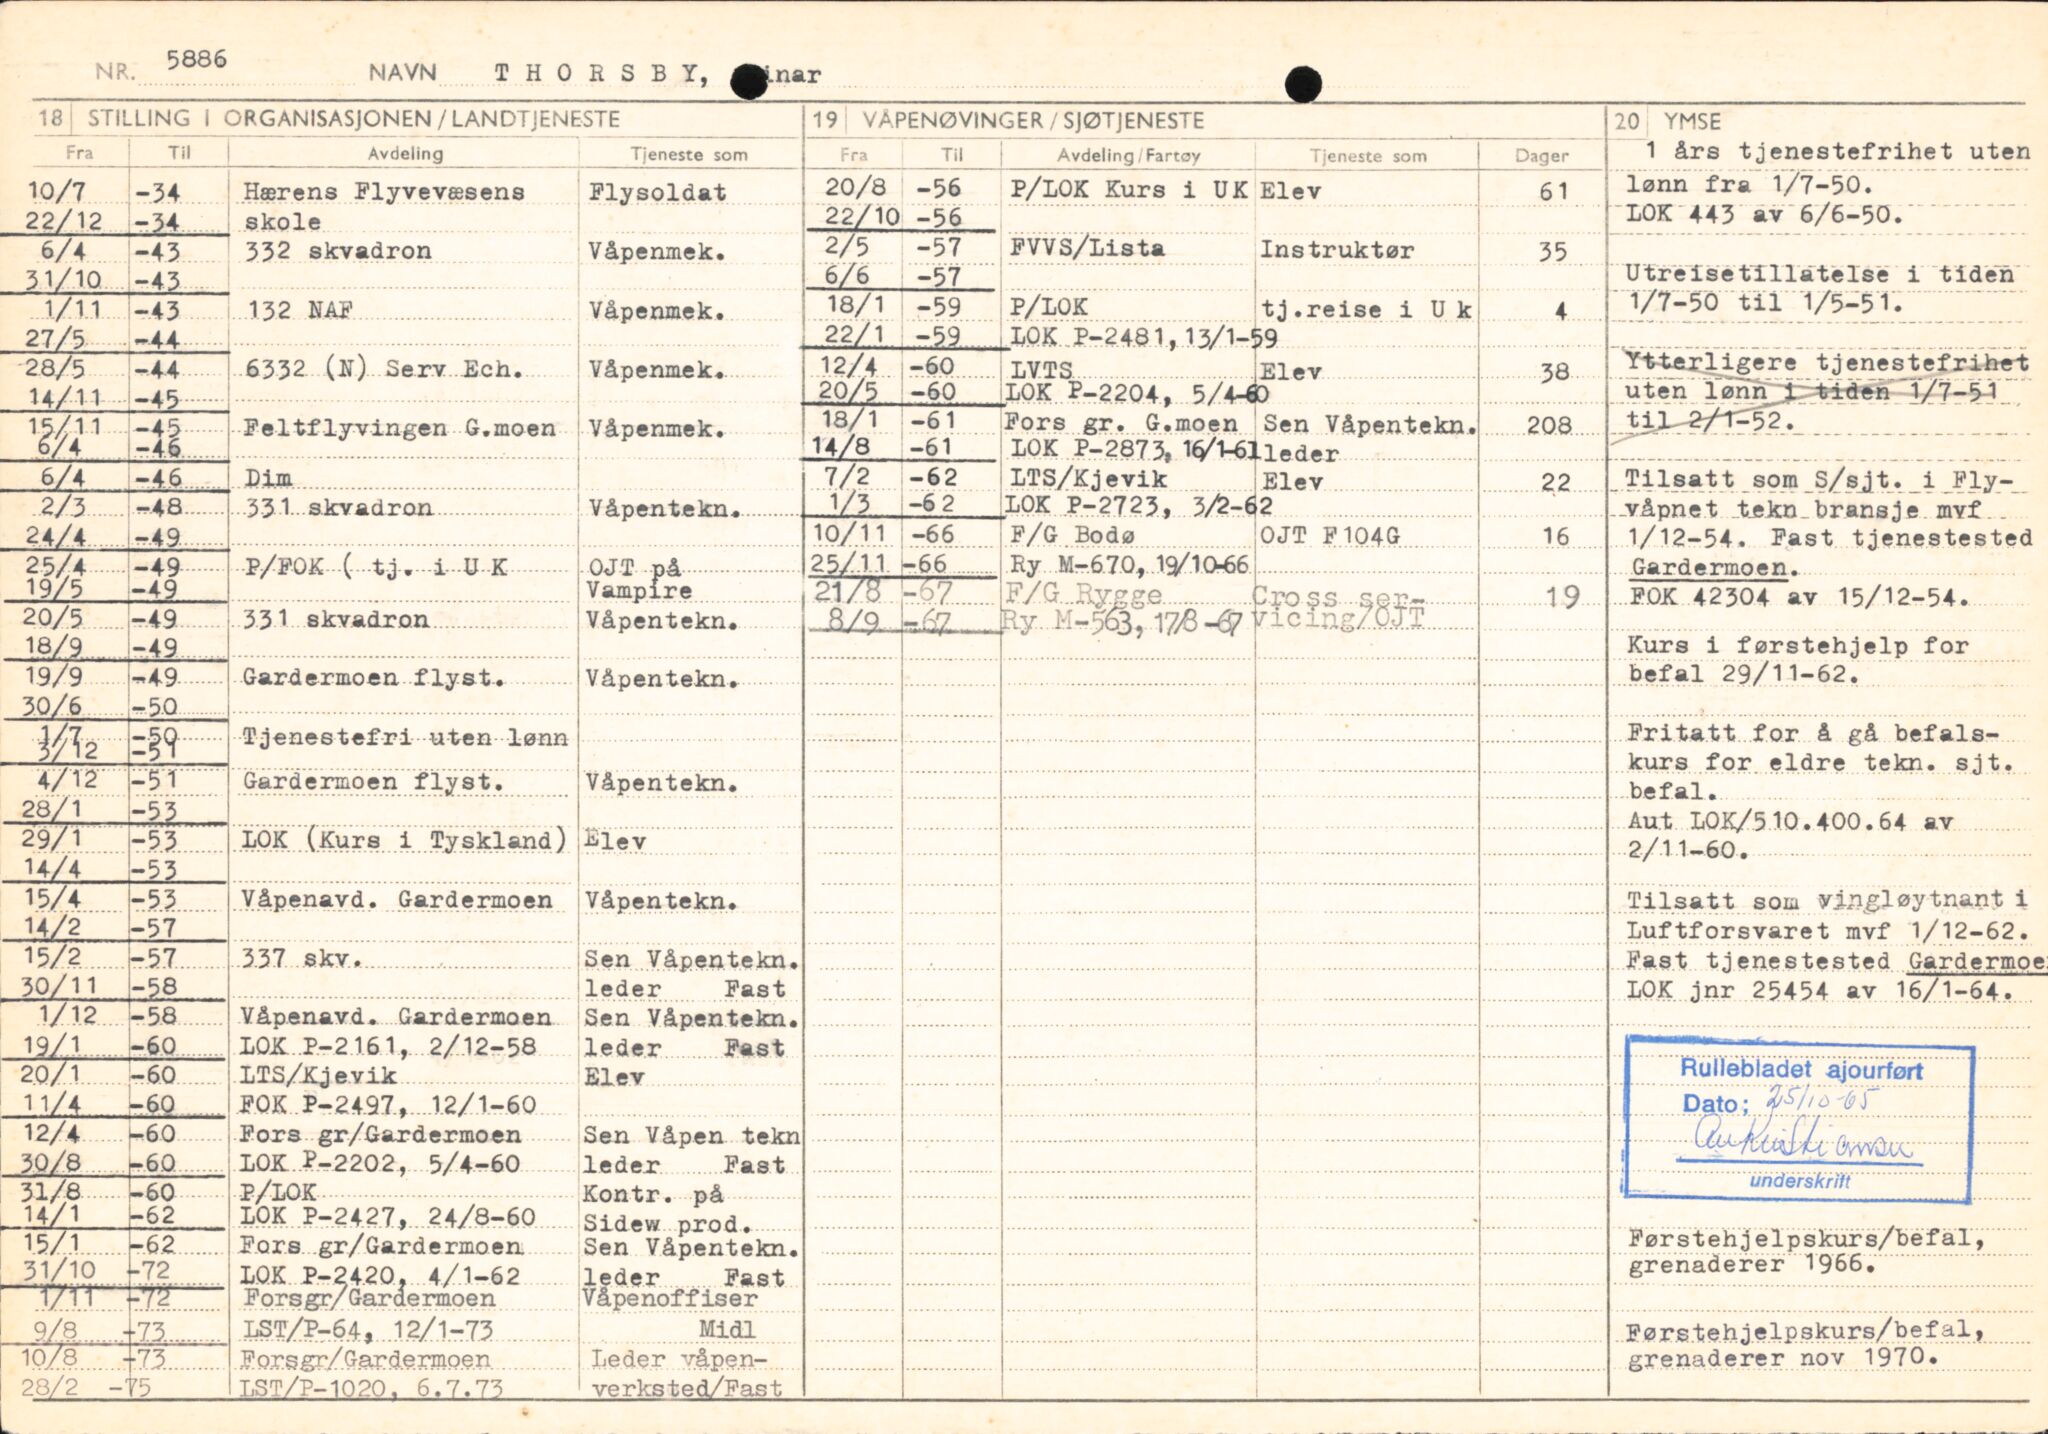 NR. 5886 NAVN THORSBY, inar
18 STILLING I ORGANISASJONEN/LANDTJENESTE
Fra Til Avdeling Tjeneste som
10/7 -34 Hærens Flyvevæsens Flysoldat
22/12 -34 skole
6/4 -43 332 skvadron Våpenmek.
31/10 -43
1/11 -43 132 NAF Våpenmek.
27/5 -44
28/5 -44 6332 (N) Serv Ech. Våpenmek.
14/11 -45
15/11 -45 Feltflyvingen G.moen Våpenmek.
6/4 -46
6/4 -46 Dim
2/3 -48 331 skvadron Våpentekn.
24/4 -49
25/4 -49 P/FOK ( tj. i U K OJT på
19/5 -49 Vampire
20/5 -49 331 skvadron Våpentekn.
18/9 -49
19/9 -49 Gardermoen flyst. Våpentekn.
30/6 -50
1/7 -50 Tjenestefri uten lønn
3/12 -51
4/12 -51 Gardermoen flyst. Våpentekn.
28/1 -53
29/1 -53 LOK (Kurs i Tyskland) Elev
14/4 -53
15/4 -53 Våpenavd. Gardermoen Våpentekn.
14/2 -57
15/2 -57 337 skv. Sen Våpentekn.
30/11 -58 leder Fast
1/12 -58 Våpenavd. Gardermoen Sen Våpentekn.
19/1 -60 LOK P-2161, 2/12-58 leder Fast
20/1 -60 LTS/Kjevik Elev
11/4 -60 FOK P-2497, 12/1-60
12/4 -60 Fors gr/Gardermoen Sen Våpen tekn
30/8 -60 LOK P-2202, 5/4-60 leder Fast
31/8 -60 P/LOK Kontr. på
14/1 -62 LOK P-2427, 24/8-60 Sidew prod.
15/1 -62 Fors gr/Gardermoen Sen Våpentekn.
31/10 -72 LOK P-2420, 4/1-62 leder Fast
1/11 -72 Forsgr/Gardermoen Våpenoffiser
9/8 -73 LST/P-64, 12/1-73 Midl
10/8 -73 Forsgr/Gardermoen Leder våpen-
28/2 -75 LST/P-1020, 6.7.73 verksted/Fast
19 VÅPENØVINGER/SJØTJENESTE
Fra Til Avdeling/Fartøy Tjeneste som Dager
20/8 -56 P/LOK Kurs i UK Elev 61
22/10 -56
2/5 -57 FVVS/Lista Instruktør 35
6/6 -57
18/1 -59 P/LOK tj.reise i U k 4
22/1 -59 LOK P-2481, 13/1-59
12/4 -60 LVTS Elev 38
20/5 -60 LOK P-2204, 5/4-60
18/1 -61 Fors gr. G.moen Sen Våpentekn. 208
14/8 -61 LOK P-2873, 16/1-61 leder
7/2 -62 LTS/Kjevik Elev 22
1/3 -62 LOK P-2723, 3/2-62
10/11 -66 F/G Bodø OJT F104G 16
25/11 -66 Ry M-670, 19/10-66
21/8 -67 F/G Rygge Cross ser- 19
8/9 -67 Ry M-563, 17/8-67 vicing/OJT
20 YMSE
1 års tjenestefrihet uten
lønn fra 1/7-50.
LOK 443 av 6/6-50.
Utreisetillatelse i tiden
1/7-50 til 1/5-51.
Ytterligere tjenestefrihet
uten lønn i tiden 1/7-51
til 2/1-52.
Tilsatt som S/sjt. i Fly-
våpnet tekn bransje mvf
1/12-54. Fast tjenestested
Gardermoen.
FOK 42304 av 15/12-54.
Kurs i førstehjelp for
befal 29/11-62.
Fritatt for å gå befals-
kurs for eldre tekn. sjt.
befal.
Aut LOK/510.400.64 av
2/11-60.
Tilsatt som vingløytnant i
Luftforsvaret mvf 1/12-62.
Fast tjenestested Gardermoen
LOK jnr 25454 av 16/1-64.
Rullebladet ajourført
Dato; 25/10-65
underskrift
Førstehjelpskurs/befal,
grenaderer 1966.
Førstehjelpskurs/befal,
grenaderer nov 1970.